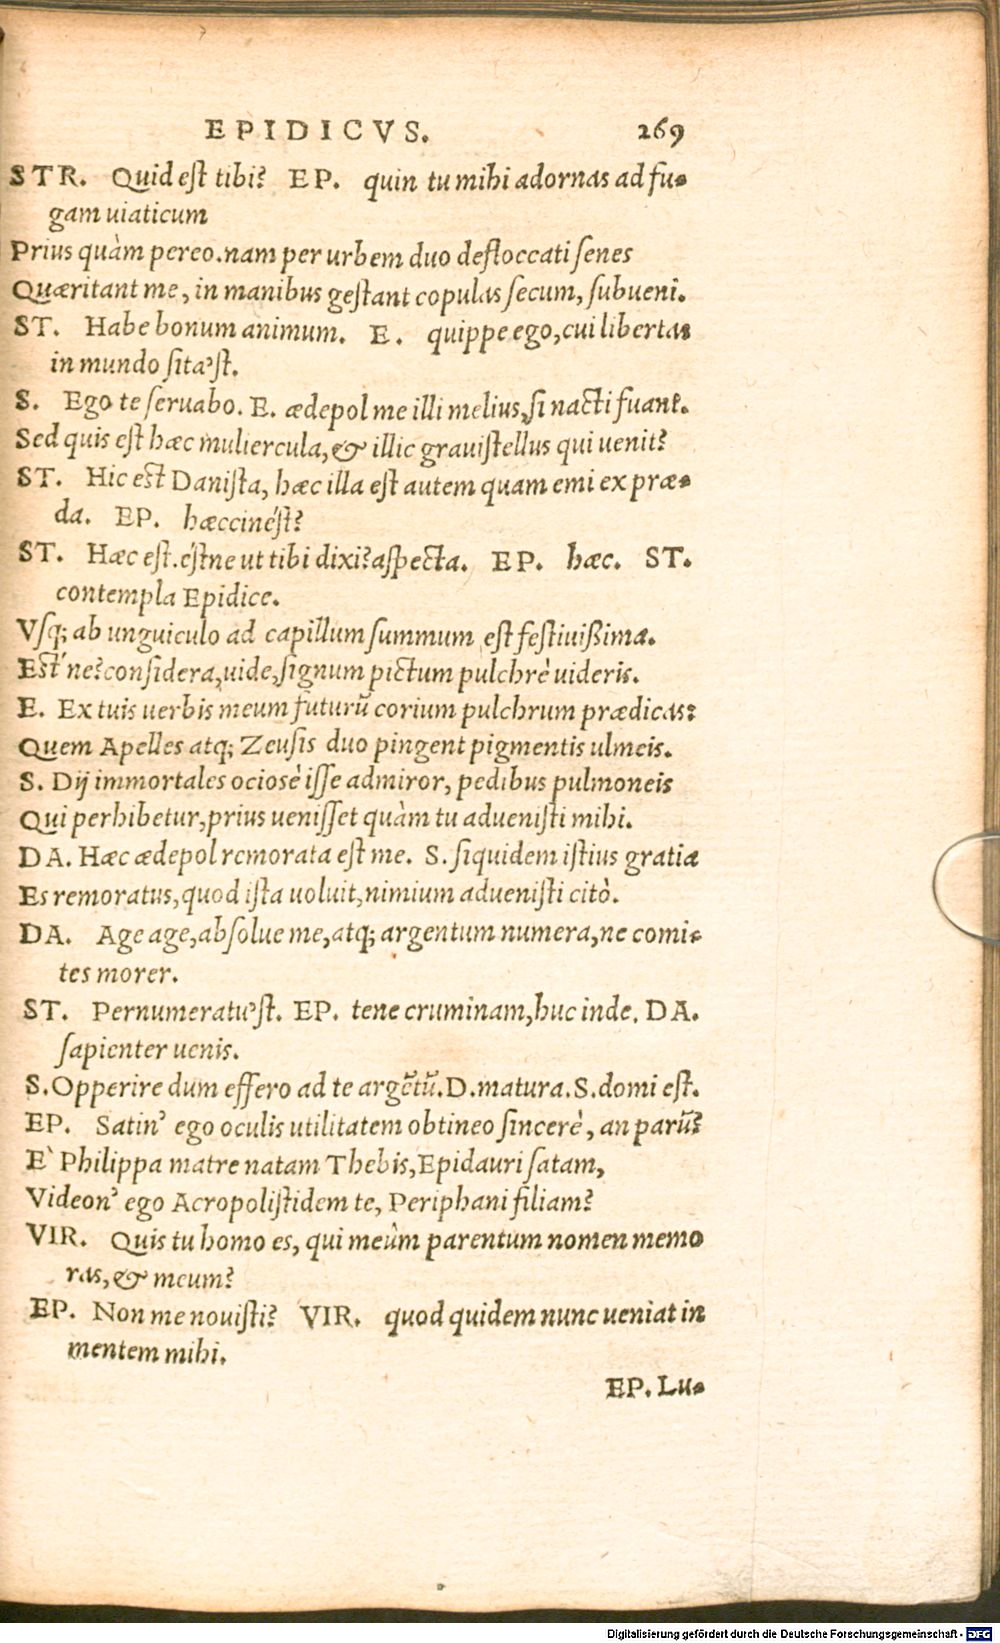 EPIDICVS. 269
STR. Quid eſt tibi? EP. quin tu mihi adornas ad fu-
gam uiaticum
Prius quàm pereo.nam per urbem duo defloccati ſenes
Quæritant me, in manibus geſtant copulas ſecum, ſubueni.
ST. Habe bonum animum. E. quippe ego, cui libertas
in mundo ſita'ſt.
S. Ego te ſeruabo. E. ædepol me illi melius, ſi nacti fuant.
Sed quis eſt hæc muliercula, & illic grauiſtellus qui uenit?
ST. Hic eſt Daniſta, hæc illa eſt autem quam emi ex præ-
da. EP. hæccinéſt?
ST. Hæc eſt.éſtne ut tibi dixi? aſpecta. EP. hæc. ST.
contempla Epidice.
Vſq; ab unguiculo ad capillum ſummum eſt feſtiuißima.
Eſt'ne? conſidera, uide, ſignum pictum pulchrè uideris.
E. Ex tuis uerbis meum futurũ corium pulchrum prædicas?
Quem Apelles atq; Zeuſis duo pingent pigmentis ulmeis.
S. Dij immortales ociosè iſſe admiror, pedibus pulmoneis
Qui perhibetur, prius ueniſſet quàm tu adueniſti mihi.
DA. Hæc ædepol remorata eſt me. S. ſiquidem iſtius gratia
Es remoratus, quod iſta uoluit, nimium adueniſti citò.
DA. Age age, abſolue me, atq; argentum numera, ne comi-
tes morer.
ST. Pernumeratu'ſt. EP. tene cruminam, huc inde. DA.
ſapienter uenis.
S. Opperire dum effero ad te argẽtũ. D. matura. S. domi eſt.
EP. Satin' ego oculis utilitatem obtineo ſincerè, an parũ?
E` Philippa matre natam Thebis, Epidauri ſatam,
Videon' ego Acropoliſtidem te, Periphani filiam?
VIR. Quis tu homo es, qui meûm parentum nomen memo
ras, & meum?
EP. Non me nouiſti? VIR. quod quidem nunc ueniat in
mentem mihi.
EP. Lu-
Digitalisierung gefördert durch die Deutsche Forschungsgemeinschaft - DFG